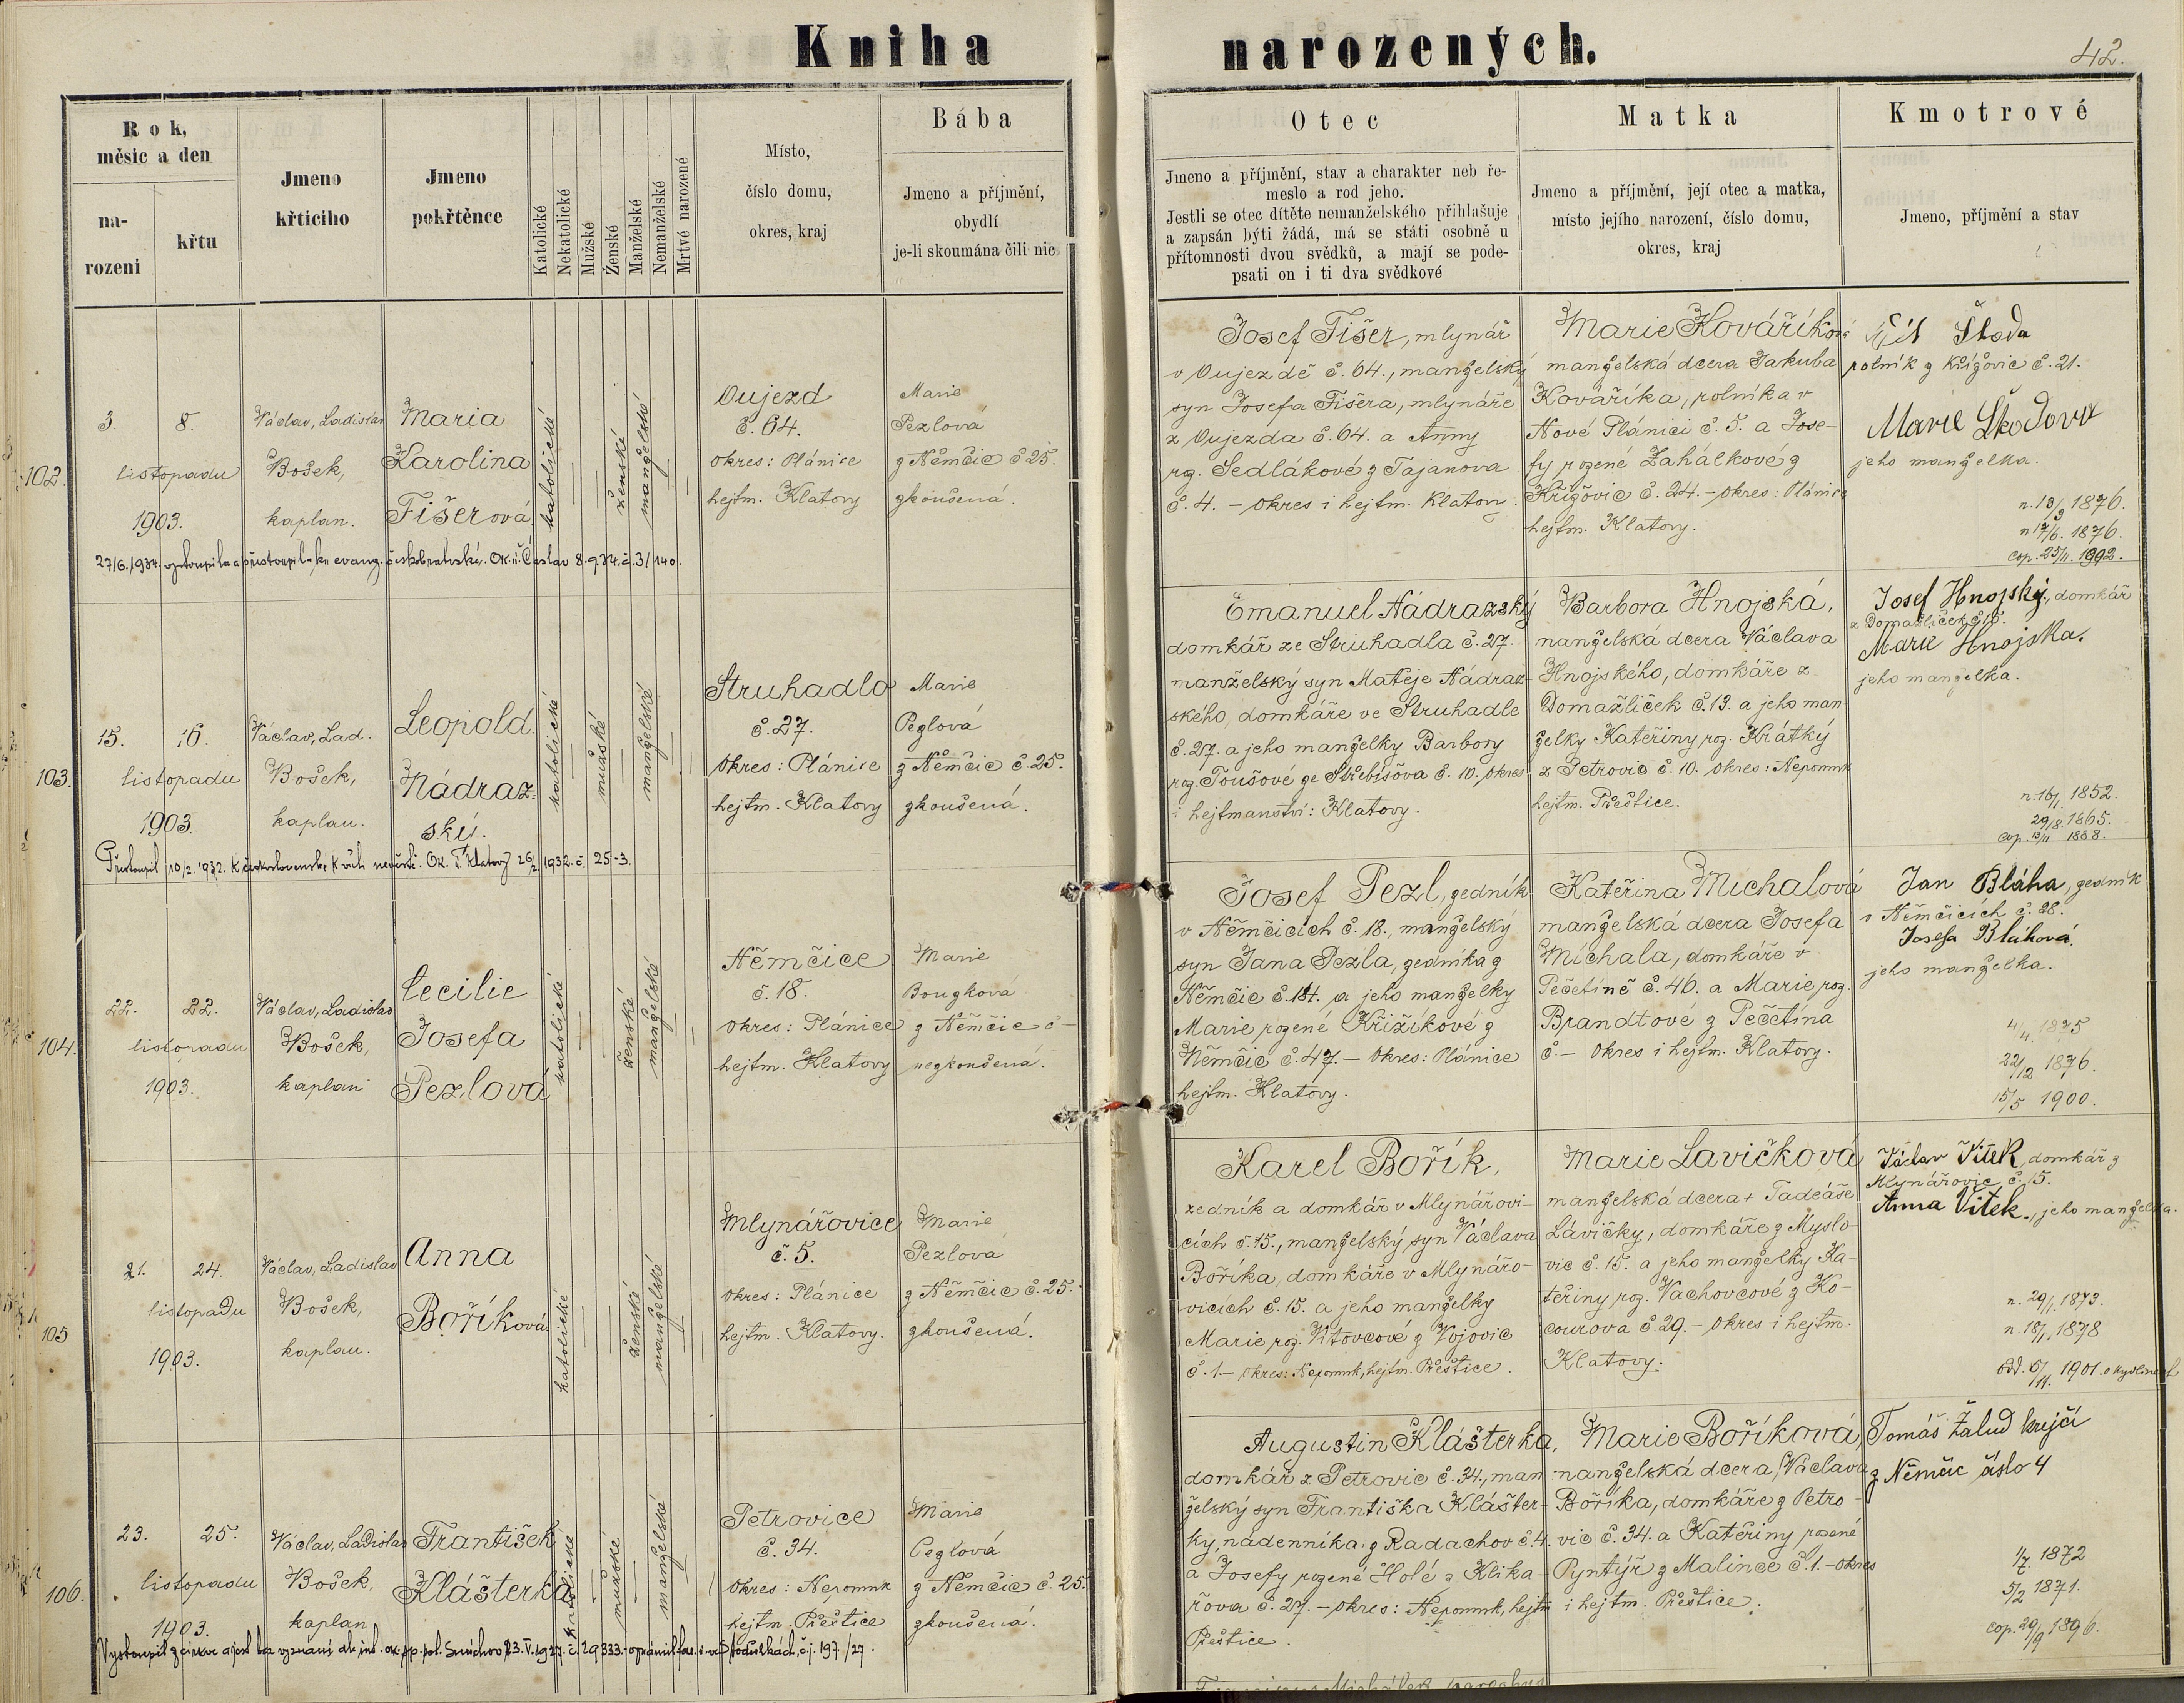 Kniha narozených.
42.
Rok, měsíc a den
narození
křtu
Jmeno křticího
Jmeno pokřtěnce
Katolické
Nekatolické
Mužské
Ženské
Manželské
Nemanželské
Mrtvě narozené
Místo,
číslo domu,
okres, kraj
Bába
Jmeno a příjmění,
obydlí
je-li skoumána čili nic
Otec
Jmeno a příjmění, stav a charakter neb ře-
meslo a rod jeho.
Jestli se otec dítěte nemanželského přihlašuje
a zapsán býti žádá, má se státi osobně u
přítomnosti dvou svědků, a mají se pode-
psati on i ti dva svědkové
Matka
Jmeno a příjmění, její otec a matka,
místo jejího narození, číslo domu,
okres, kraj
Kmotrové
Jmeno, příjmění a stav
102.
3. 8.
listopadu
1903.
Václav, Ladislav
Bošek,
kaplan.
Maria
Karolina
Fišerová
katolické
ženské
manželské
Oujezd
č. 64.
Okres: Plánice
hejtm. Klatovy
Marie
Pezlová
z Němčic č 25.
zkoušená.
Josef Fišer, mlynář
v Oujezdě č. 64., manželský
syn Josefa Fišera, mlynáře
z Oujezda č. 64. a Anny
roz. Sedlákové z Tajanova
č. 4. – Okres i hejtm. Klatovy
Marie Kováříková
manželská dcera Jakuba
Kováříka, rolníka v
Nové Plánici č. 5. a Jose-
fy rozené Zahálkové z
Křižovic č. 24. – Okres: Plánice
hejtm. Klatovy.
Vít Škoda
rolník z Křížovic č. 21.
Marie Škodova
jeho manželka.
n. 13/9 1876.
n 17/6. 1876.
Cop. 25/11. 1902.
27/6. 1934. vystoupila a přistoupila ku evang. českobratrské. Ok. ú. Čáslav 8.9.34. č. 31140.
103.
15. 16.
listopadu
1903.
Václav, Lad.
Bošek,
kaplan.
Leopold
Nádraz-
ský.
katolické
mužské
manželské
Struhadlo
č. 27.
Okres: Plánice
hejtm. Klatovy
Marie
Pezlová
z Němčic č. 25.
zkoušená.
Emanuel Nádrazský
domkář ze Struhadla č. 27.
manželský syn Matěje Nádraz-
ského, domkáře ve Struhadle
č. 27. a jeho manželky Barbory
roz. Toušové ze Střebišova č. 10. Okres
i hejtmanství: Klatovy.
Barbora Hnojská,
manželská dcera Václava
Hnojského, domkáře z
Domažliček č. 13. a jeho man-
želky Kateřiny roz. Krátký
z Petrovic č. 10. Okres: Nepomuk
hejtm. Přeštice.
Josef Hnojský, domkář
z Domažliček č 15.
Marie Hnojska.
jeho manželka.
n. 16/1. 1852.
29/8. 1865.
Cop. 13/11 1888.
Přistoupil 10/2. 1932. k československé církvi. Ok. ú. Klatovy 26/2. 1932. č. 25-3.
104.
22. 22.
listopadu
1903.
Václav, Ladislav
Bošek,
kaplan
Cecilie
Josefa
Pezlová
katolické
ženské
manželské
Němčice
č. 18.
Okres: Plánice
hejtm. Klatovy
Marie
Bouzková
z Němčic č –
nezkoušená.
Josef Pezl, zedník
v Němčicích č. 18., manželský
syn Jana Pezla, zedníka z
Němčic č. 184. a jeho manželky
Marie rozené Křižíkové z
Němčic č. 47. – Okres: Plánice
hejtm. Klatovy.
Kateřina Michalová
manželská dcera Josefa
Michala, domkáře v
Pečetíně č. 46. a Marie roz.
Brandtové z Pečetína
č. – Okres i hejtm. Klatovy.
Jan Bláha, zedník
v Němčicích č. 28.
Josefa Bláhová.
jeho manželka.
4/4. 1875
22/12 1876.
15/5 1900.
105
21. 24.
listopadu
1903.
Václav, Ladislav
Bošek,
kaplan.
Anna
Boříková
katolické
ženské
manželské
Mlynářovice
č. 5.
Okres: Plánice
hejtm. Klatovy.
Marie
Pezlová
z Němčic č. 25.
zkoušená.
Karel Bořík,
zedník a domkář v Mlynářovi-
cích č. 15., manželský syn Václava
Boříka, domkáře v Mlynářo-
vicích č. 15. a jeho manželky
Marie roz. Vítovcové z Vojovic
č. 1. – Okres: Nepomuk, hejtm. Přeštice.
Marie Lavičková
manželská dcera + Tadeáše
Lávičky, domkáře z Myslo-
vic č. 15. a jeho manželky Ka-
teřiny roz. Vachovcové z Ko-
courova č. 29. – Okres i hejtm.
Klatovy.
Václav Vítek, domkář z
Mlynářovic č. 15.
Anna Vítek., jeho manželka.
n. 29/1. 1873.
n. 18/1. 1878
Odd. 5/11. 1901.
106.
23. 25.
listopadu
1903.
Václav, Ladislav
Bošek,
kaplan
František
Klášterka
katolické
mužské
manželské
Petrovice
č. 34.
Okres: Nepomuk
hejtm. Přeštice
Marie
Pezlová
z Němčic č. 25.
zkoušená.
Augustin Klášterka,
domkář z Petrovic č. 34., man-
želský syn Františka Klášter-
ky, nádenníka z Radachov č. 4.
a Josefy rozené Holé z Klika-
řova č. 27. – Okres: Nepomuk, hejtm
Přeštice.
Marie Boříková,
manželská dcera Václava
Boříka, domkáře z Petro-
vic č. 34. a Kateřiny rozené
Pyntýř z Malince č. 1. – Okres
i hejtm. Přeštice.
Tomáš Žalud krejčí
z Němčic číslo 4
1/7 1872
5/2 1871.
Cop. 29/9 1896.
Vystoupil z církve a jest bez vyznání dle ok. sp. pol. Smíchov 23.V.1927. č. 29333. č.j. 197/27.